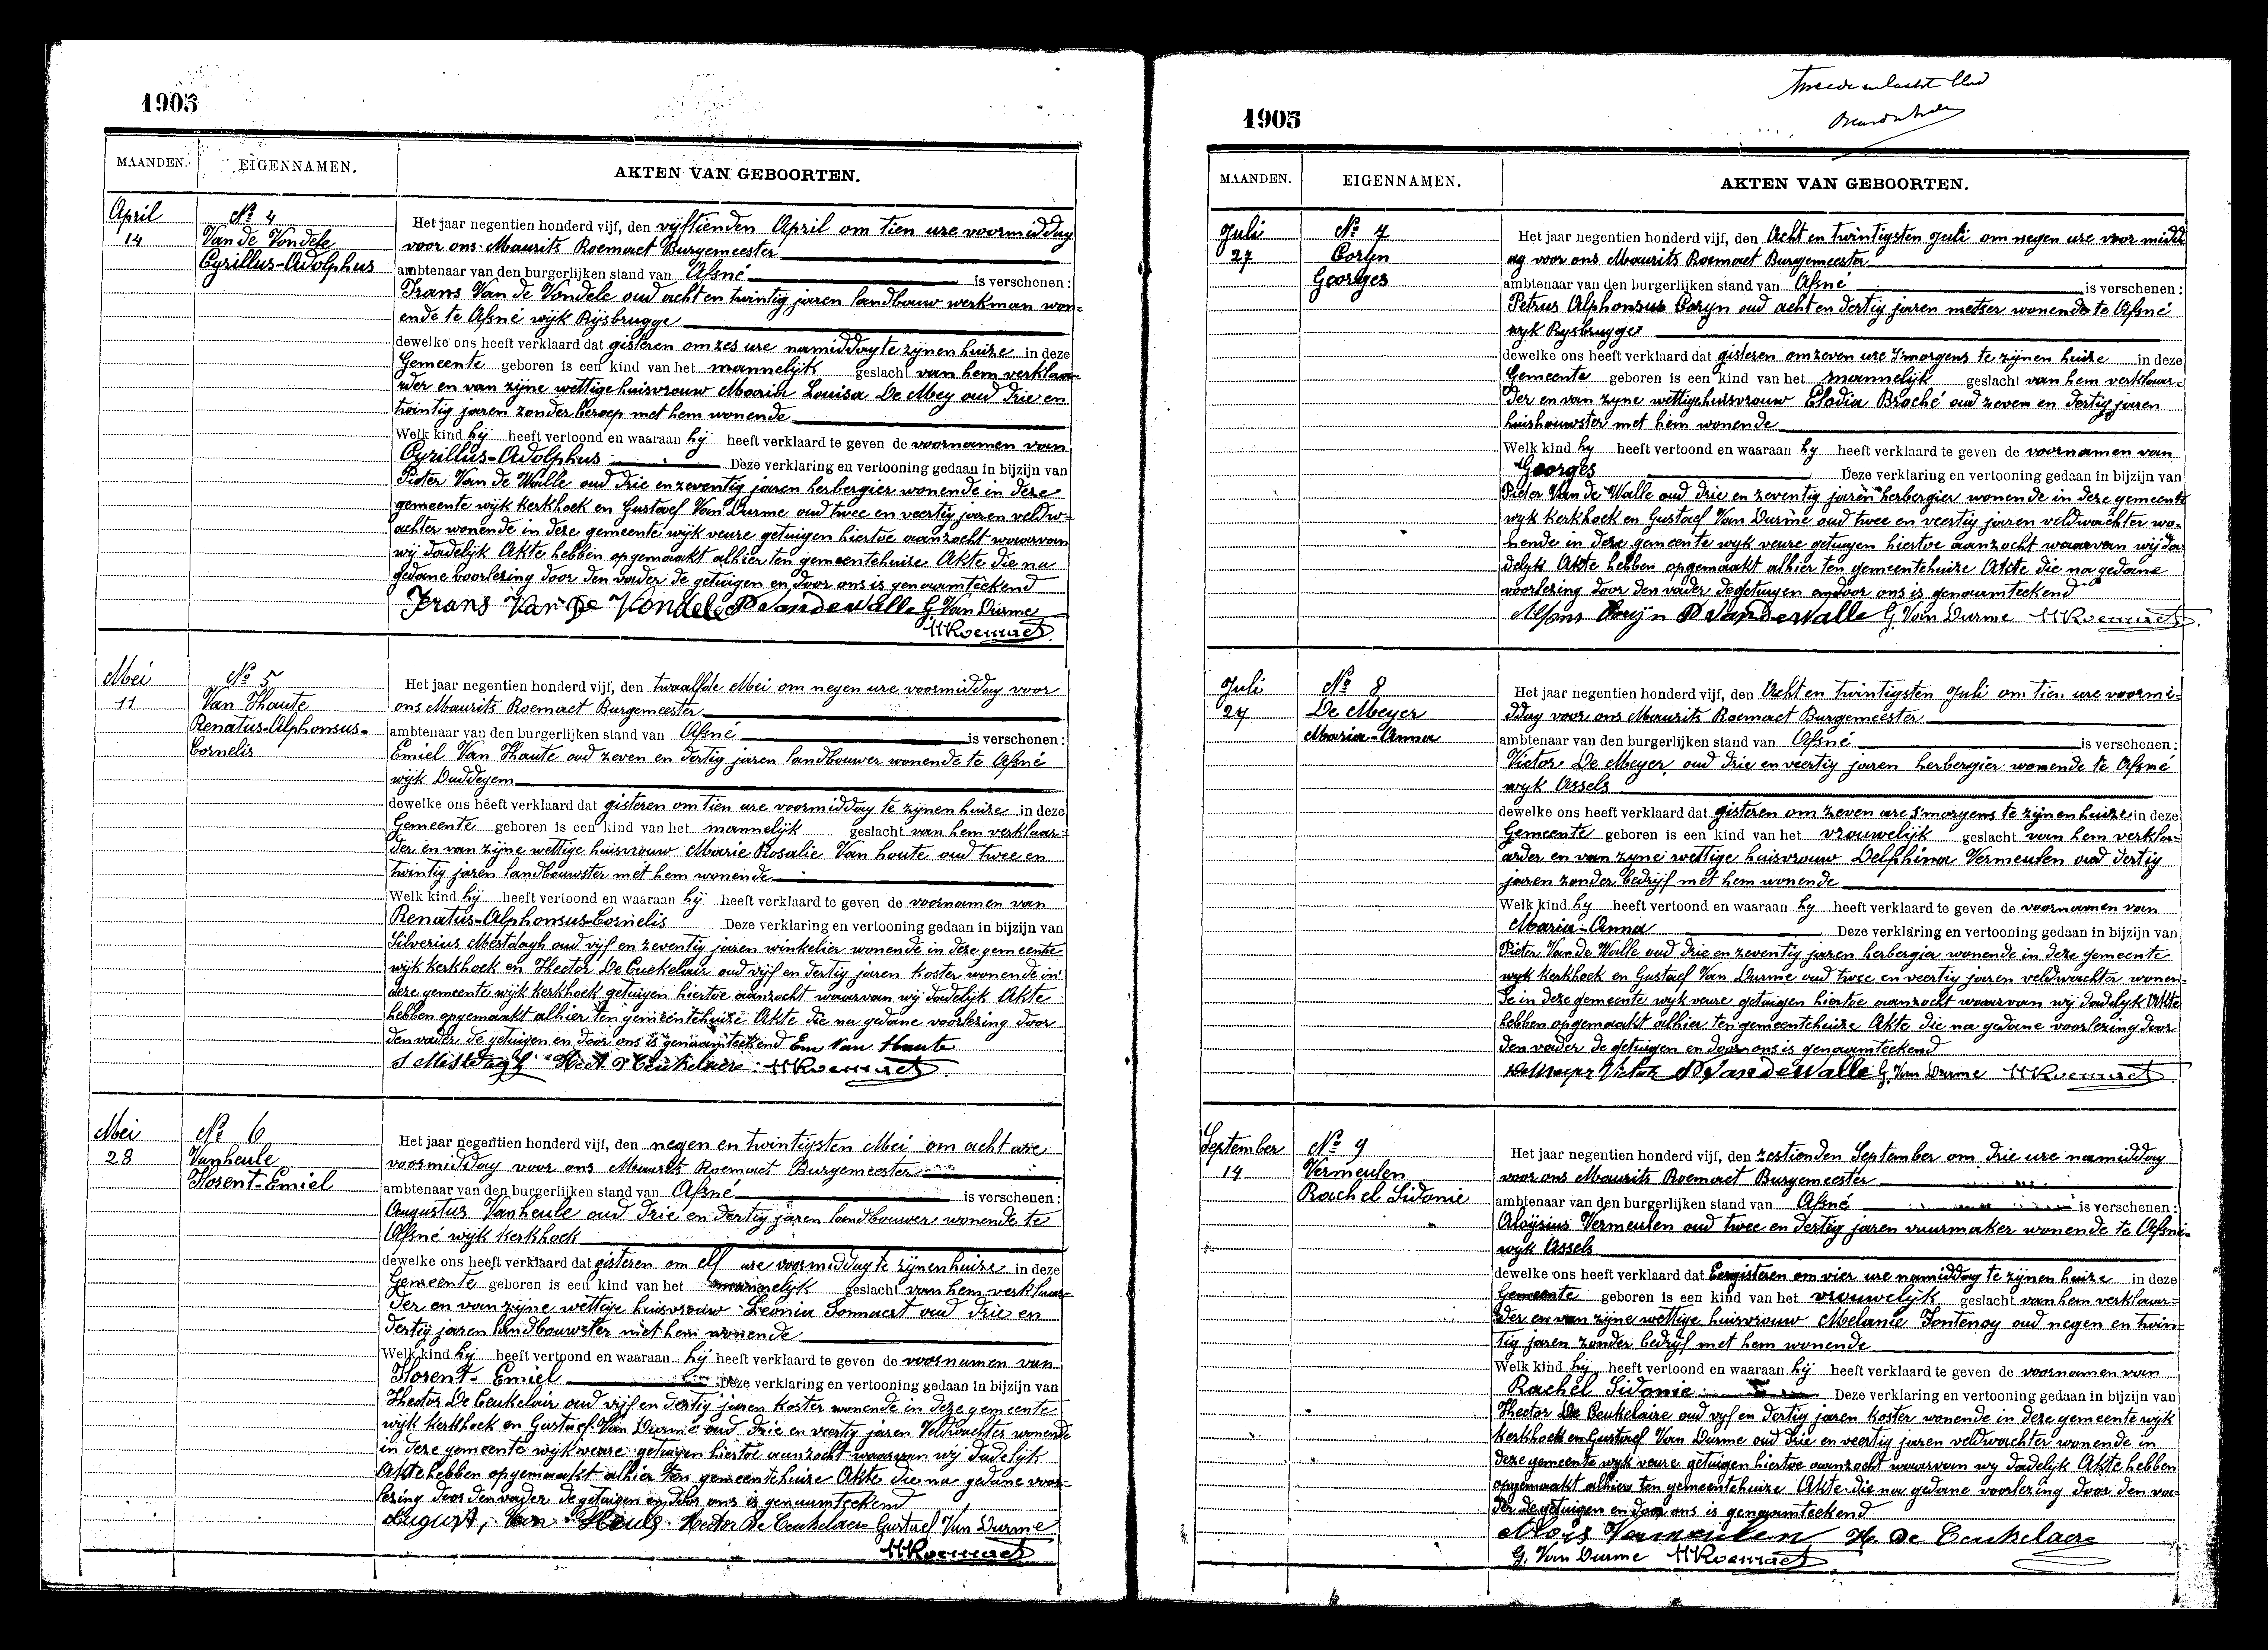 1905
MAANDEN. EIGENNAMEN. AKTEN VAN GEBOORTEN.
April
14
Nº 4
Van de Vondele
Cyrillus-Adolphus
Het jaar negentien honderd vijf, den vijftienden April om tien ure voormiddag
voor ons Maurits Roemaet Burgemeester
ambtenaar van den burgerlijken stand van Afsné is verschenen:
Frans Van de Vondele oud acht en twintig jaren landbouw werkman won-
ende te Afsné wijk Rijsbrugge
dewelke ons heeft verklaard dat gisteren om zes ure namiddag te zijnen huize in deze
Gemeente geboren is een kind van het mannelijk geslacht van hem verklaa-
rder en van zijne wettige huisvrouw Maria Louisa De Mey oud drie en
twintig jaren zonder beroep met hem wonende
Welk kind hij heeft vertoond en waaraan hij heeft verklaard te geven de voornamen van
Cyrillus-Adolphus Deze verklaring en vertooning gedaan in bijzijn van
Pieter Van de Walle oud drie en zeventig jaren herbergier wonende in deze
gemeente wijk kerkhoek en Gustaef Van Durme oud twee en veertig jaren veldw-
achter wonende in deze gemeente wijk veure getuigen hiertoe aanzocht waarvan
wij dadelijk Akte hebben opgemaakt alhier ten gemeentehuize Akte die na
gedane voorlezing door den vader de getuigen en door ons is genaamteekend
Frans Van De Vondele P Vandewalle G. Van Durme
MRoemaet
Mei
11
Nº 5
Van Thaute
Renatus-Alphonsus-
Cornelis
Het jaar negentien honderd vijf, den twaalfde Mei om negen ure voormiddag voor
ons Maurits Roemaet Burgemeester
ambtenaar van den burgerlijken stand van Afsné is verschenen:
Emiel Van Thaute oud zeven en dertig jaren landbouwer wonende te Afsné
wijk Duddegem
dewelke ons heeft verklaard dat gisteren om tien ure voormiddag te zijnen huize in deze
Gemeente geboren is een kind van het mannelijk geslacht van hem verklaar-
der en van zijne wettige huisvrouw Marie Rosalie Van houte oud twee en
twintig jaren landbouwster met hem wonende
Welk kind hij heeft vertoond en waaraan hij heeft verklaard te geven de voornamen van
Renatus-Alphonsus-Cornelis Deze verklaring en vertooning gedaan in bijzijn van
Silverius Mestdagh oud vijf en zeventig jaren winkelier wonende in deze gemeente
wijk kerkhoek en Hector De Ceukelair oud vijf en dertig jaren koster wonende in
deze gemeente wijk kerkhoek getuigen hiertoe aanzocht waarvan wij dadelijk Akte
hebben opgemaakt alhier ten gemeentehuize Akte die na gedane voorlezing door
den vader de getuigen en door ons is genaamteekend Em Van Haute
S Mestdagh Hect D Ceukelaire MRoemaet
Mei
28
Nº 6
Vanheule
Florent-Emiel
Het jaar negentien honderd vijf, den negen en twintigsten Mei om acht ure
voormiddag voor ons Maurits Roemaet Burgemeester
ambtenaar van den burgerlijken stand van Afsné is verschenen:
Augustus Vanheule oud drie en dertig jaren landbouwer wonende te
Afsné wijk kerkhoek
dewelke ons heeft verklaard dat gisteren om elf ure voormiddag te zijnen huize in deze
Gemeente geboren is een kind van het mannelijk geslacht van hem verklaar-
der en van zijne wettige huisvrouw Leonia Sonnaert oud drie en
dertig jaren landbouwster met hem wonende
Welk kind hij heeft vertoond en waaraan hij heeft verklaard te geven de voornamen van
Florent-Emiel Deze verklaring en vertooning gedaan in bijzijn van
Hector De Ceukelair oud vijf en dertig jaren koster wonende in deze gemeente
wijk kerkhoek en Gustaef Van Durme oud drie en veertig jaren Veldwachter wonende
in deze gemeente wijk veure getuigen hiertoe aanzocht waarvan wij dadelijk
Akte hebben opgemaakt alhier ten gemeentehuize Akte die na gedane voor-
lezing door den vader de getuigen en door ons is genaamteekend
August, Van Heule Hector De Ceukelaere Gustaef Van Durme
MRoemaet
tweede en laatste blad
1905
MAANDEN. EIGENNAMEN. AKTEN VAN GEBOORTEN.
Juli
27
Nº 7
Coryn
Georges
Het jaar negentien honderd vijf, den Acht en twintigsten Juli om negen ure voor midd
ag voor ons Maurits Roemaet Burgemeester
ambtenaar van den burgerlijken stand van Afsné is verschenen:
Petrus Alphonsus Coryn oud acht en dertig jaren metser wonende te Afsné
wyk Rysbrugge
dewelke ons heeft verklaard dat gisteren om zeven ure s'morgens te zijnen huize in deze
Gemeente geboren is een kind van het mannelijk geslacht van hem verklaar-
der en van zyne wettige huisvrouw Elodia Braché oud zeven en dertig jaren
huishouwster met hem wonende
Welk kind hy heeft vertoond en waaraan hy heeft verklaard te geven de voornamen van
Georges Deze verklaring en vertooning gedaan in bijzijn van
Pieter Van de Walle oud drie en zeventig jaren herbergier wonende in deze gemeente
wyk kerkhoek en Gustaef Van Durme oud twee en veertig jaren veldwachter wo-
nende in deze gemeente wyk veure getuigen hiertoe aanzocht waarvan wij da
delyk Akte hebben opgemaakt alhier ten gemeentehuize Akte die na gedane
voorlezing door den vader de getuigen en door ons is genaamteekend
Alfons Coryn P Vandewalle G. Van Durme MRoemaet
Juli
27
Nº 8
De Meyer
Maria-Anna
Het jaar negentien honderd vijf, den Acht en twintigsten Juli om tien ure voormi-
ddag voor ons Maurits Roemaet Burgemeester
ambtenaar van den burgerlijken stand van Afsné is verschenen:
Victor De Meyer oud drie en veertig jaren herbergier wonende te Afsné
wyk Assels
dewelke ons heeft verklaard dat gisteren om zeven ure s'morgens te zijnen huize in deze
Gemeente geboren is een kind van het vrouwelijk geslacht van hem verkla-
arder en van zyne wettige huisvrouw Delphina Vermeulen oud dertig
jaren zonder bedrijf met hem wonende
Welk kind hy heeft vertoond en waaraan hy heeft verklaard te geven de voornamen van
Maria-Anna Deze verklaring en vertooning gedaan in bijzijn van
Pieter Van de Walle oud drie en zeventig jaren herbergier wonende in deze gemeente
wyk kerkhoek en Gustaef Van Durme oud twee en veertig jaren veldwachter wonen-
de in deze gemeente wyk veure getuigen hiertoe aanzocht waarvan wij dadelyk Akte
hebben opgemaakt alhier ten gemeentehuize Akte die na gedane voorlezing door
den vader de getuigen en door ons is genaamteekend
Demeyer Victor P Vandewalle G. Van Durme MRoemaet
September
14
Nº 9
Vermeulen
Rachel Sidonie
Het jaar negentien honderd vijf, den zestienden September om drie ure namiddag
voor ons Maurits Roemaet Burgemeester
ambtenaar van den burgerlijken stand van Afsné is verschenen:
Aloÿsius Vermeulen oud twee en dertig jaren vuurmaker wonende te Afsné-
wyk Assels
dewelke ons heeft verklaard dat Eergisteren om vier ure namiddag te zijnen huize in deze
Gemeente geboren is een kind van het vrouwelyk geslacht van hem verklaar-
der en van zijne wettige huisvrouw Melanie Fontenoy oud negen en twin-
tig jaren zonder bedrijf met hem wonende
Welk kind hij heeft vertoond en waaraan hij heeft verklaard te geven de voornamen van
Rachel Sidonie Deze verklaring en vertooning gedaan in bijzijn van
Hector De Ceukelaire oud vyf en dertig jaren koster wonende in deze gemeente wijk
Kerkhoek en Gustaef Van Durme oud drie en veertig jaren veldwachter wonende in
deze gemeente wyk veure getuigen hiertoe aanzocht waarvan wy dadelijk Akte hebben
opgemaakt alhier ten gemeentehuize Akte die na gedane voorlezing door den va-
der de getuigen en door ons is genaamteekend
Aloïs Vermeulen H. De Ceukelaere
G. Van Durme MRoemaet